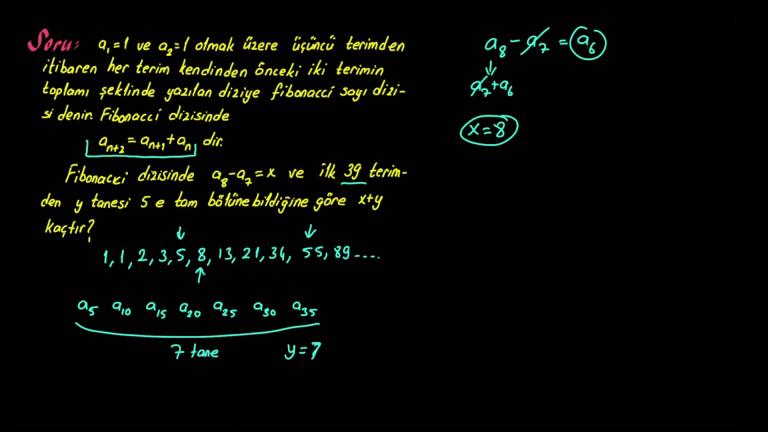 Soru: a₁=1 ve a₂=1 olmak üzere üçüncü terimden
itibaren her terim kendinden önceki iki terimin
toplamı şeklinde yazılan diziye fibonacci sayı dizi-
si denir. Fibonacci dizisinde
aₙ₊₂ = aₙ₊₁ + aₙ dir.
Fibonacci dizisinde a₈-a₇=x ve ilk 39 terim-
den y tanesi 5 e tam bölünebildiğine göre x+y
kaçtır?
1, 1, 2, 3, 5, 8, 13, 21, 34, 55, 89 ....
a₅ a₁₀ a₁₅ a₂₀ a₂₅ a₃₀ a₃₅
7 tane y=7
a₈ - a₇ = a₆
a₇+a₆
x=8